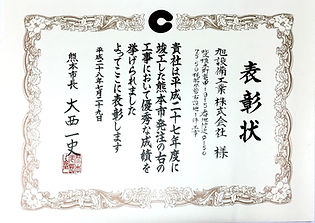 表彰状
旭設備工業株式会社 様
貴社は平成二十七年度に
竣工した熊本市発注の右の
工事において優秀な成績を
挙げられました
よってここに表彰します
平成二十八年七月二十九日
熊本市長 大西一史